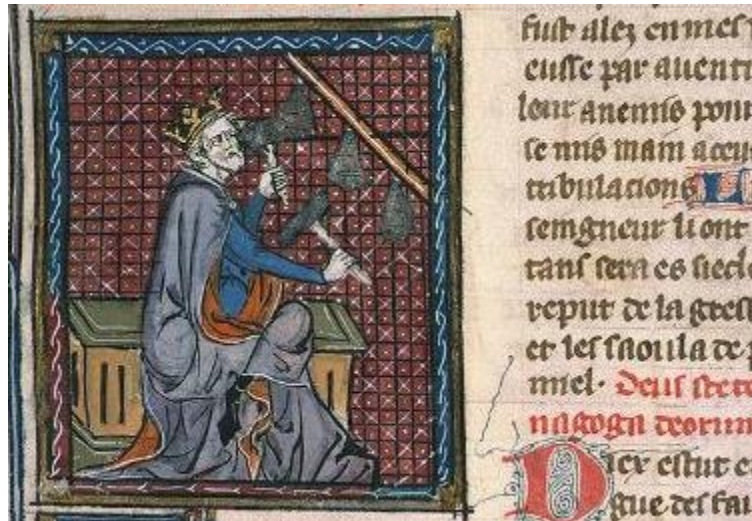 fust alez en mes
eusse par auent
leur anemis pour
se mis main a
tribulacions L
seingneur li ont
tans sera es siecl
reput de la gres
et les saoula de
miel. Deus stet
nagoga deorum
Diex estut e
gue des fau